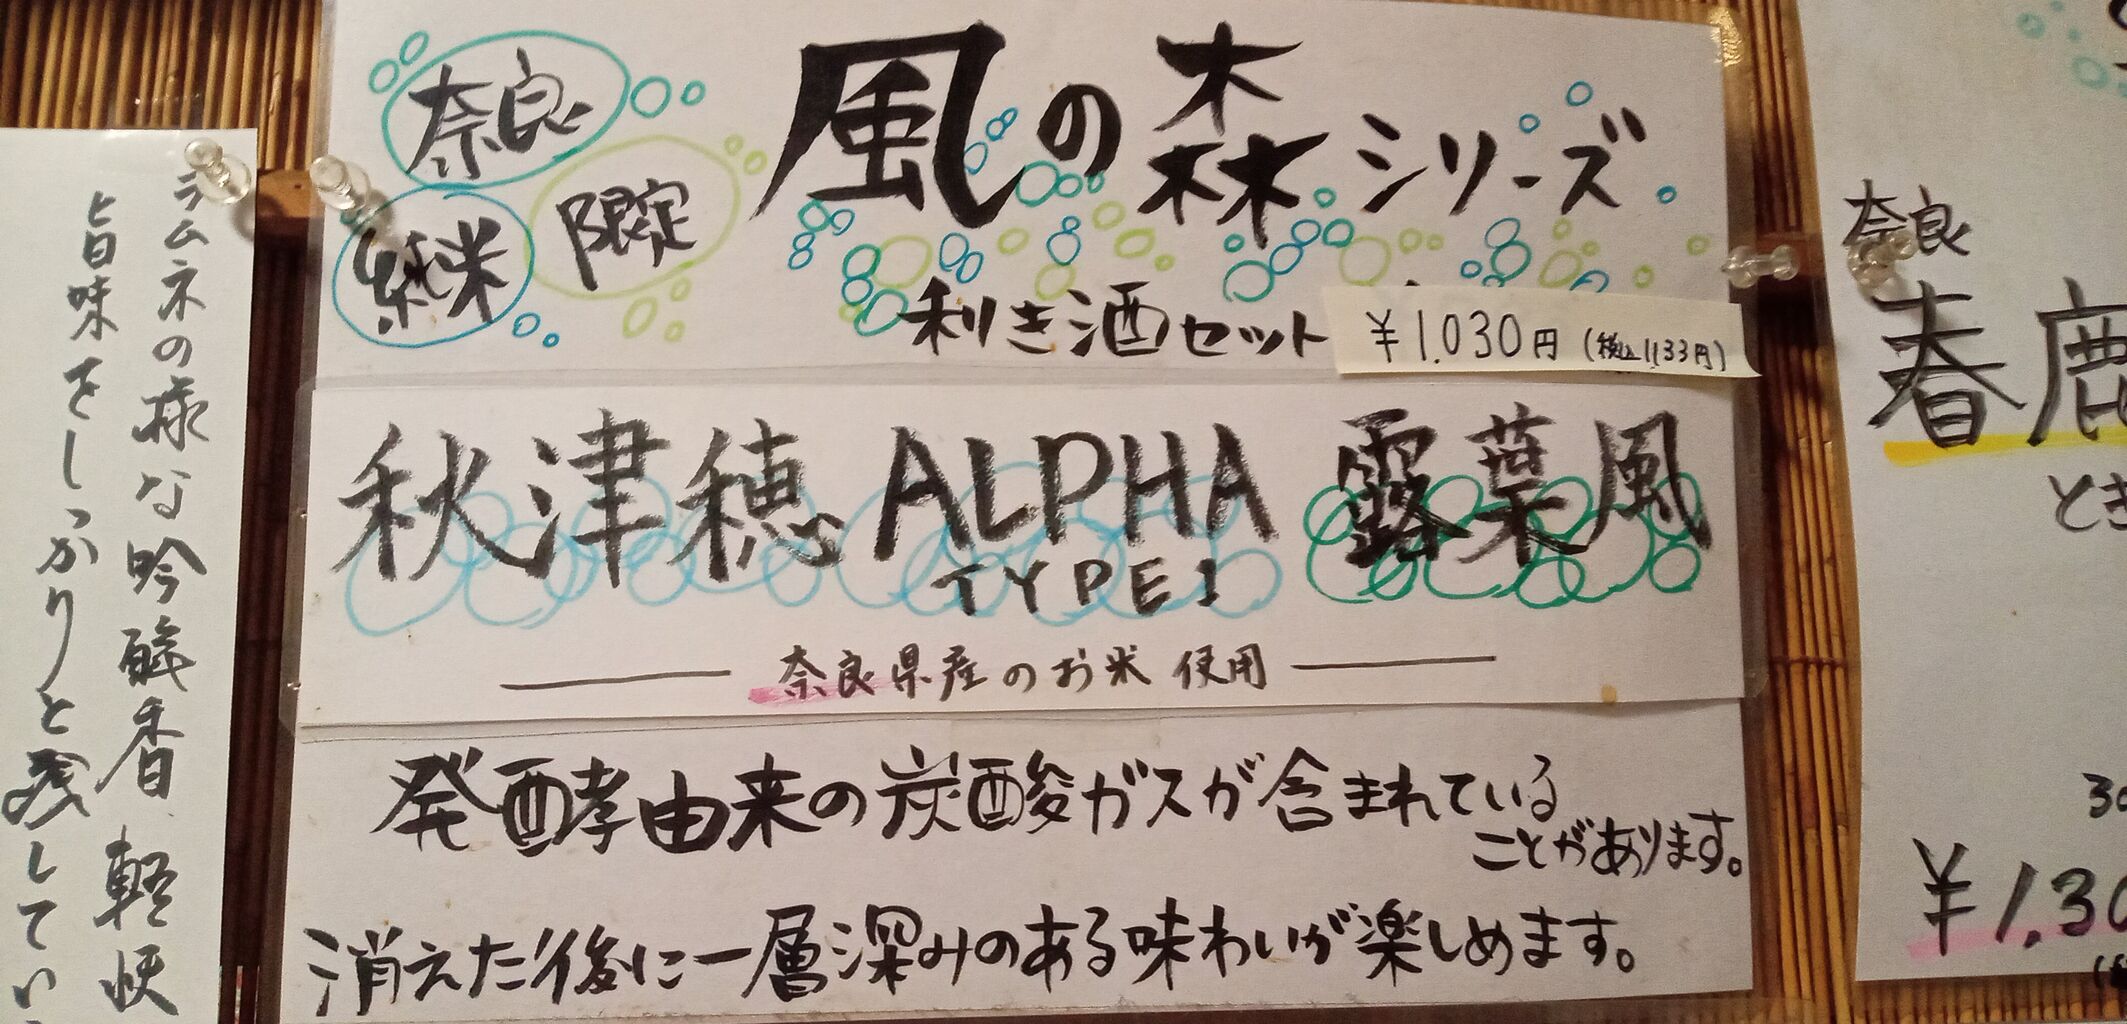 ラムネの様な吟醸香、軽快
旨味をしっかりと残してい
奈良
純米
限定
風の森シリーズ
利き酒セット
¥1,030円(税込1133円)
秋津穂 ALPHA 露葉風
TYPE1
奈良県産のお米使用
発酵由来の炭酸ガスが含まれている
ことがあります。
消えた後に一層深みのある味わいが楽しめます。
奈良
春鹿
とき
30
¥1,30